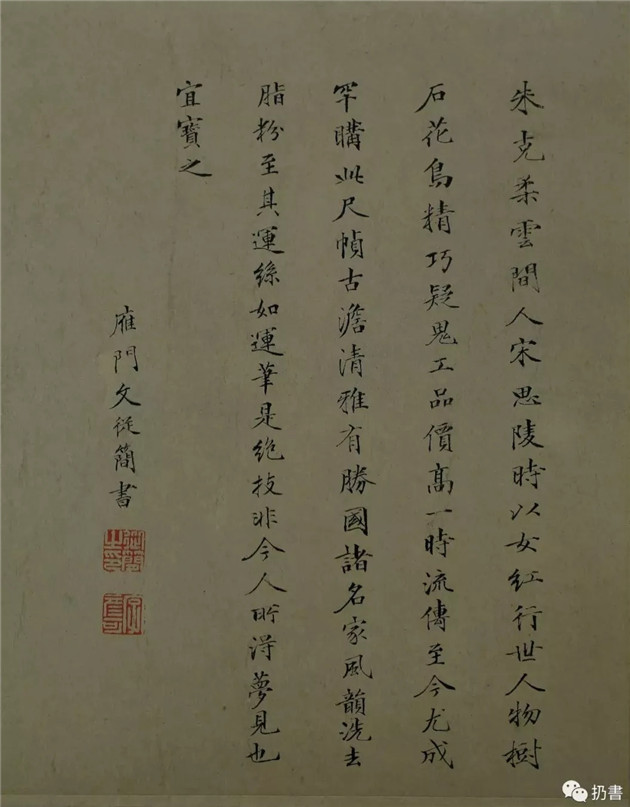 朱克柔雲間人宋思陵時以女紅行世人物樹
石花鳥精巧疑鬼工品價髙一時流傳至今尤成
罕購此尺幀古澹清雅有勝國諸名家風韻洗去
脂粉至其運絲如運筆是絶技非今人所得夢見也
宜寶之
雁門文從簡書
扔書